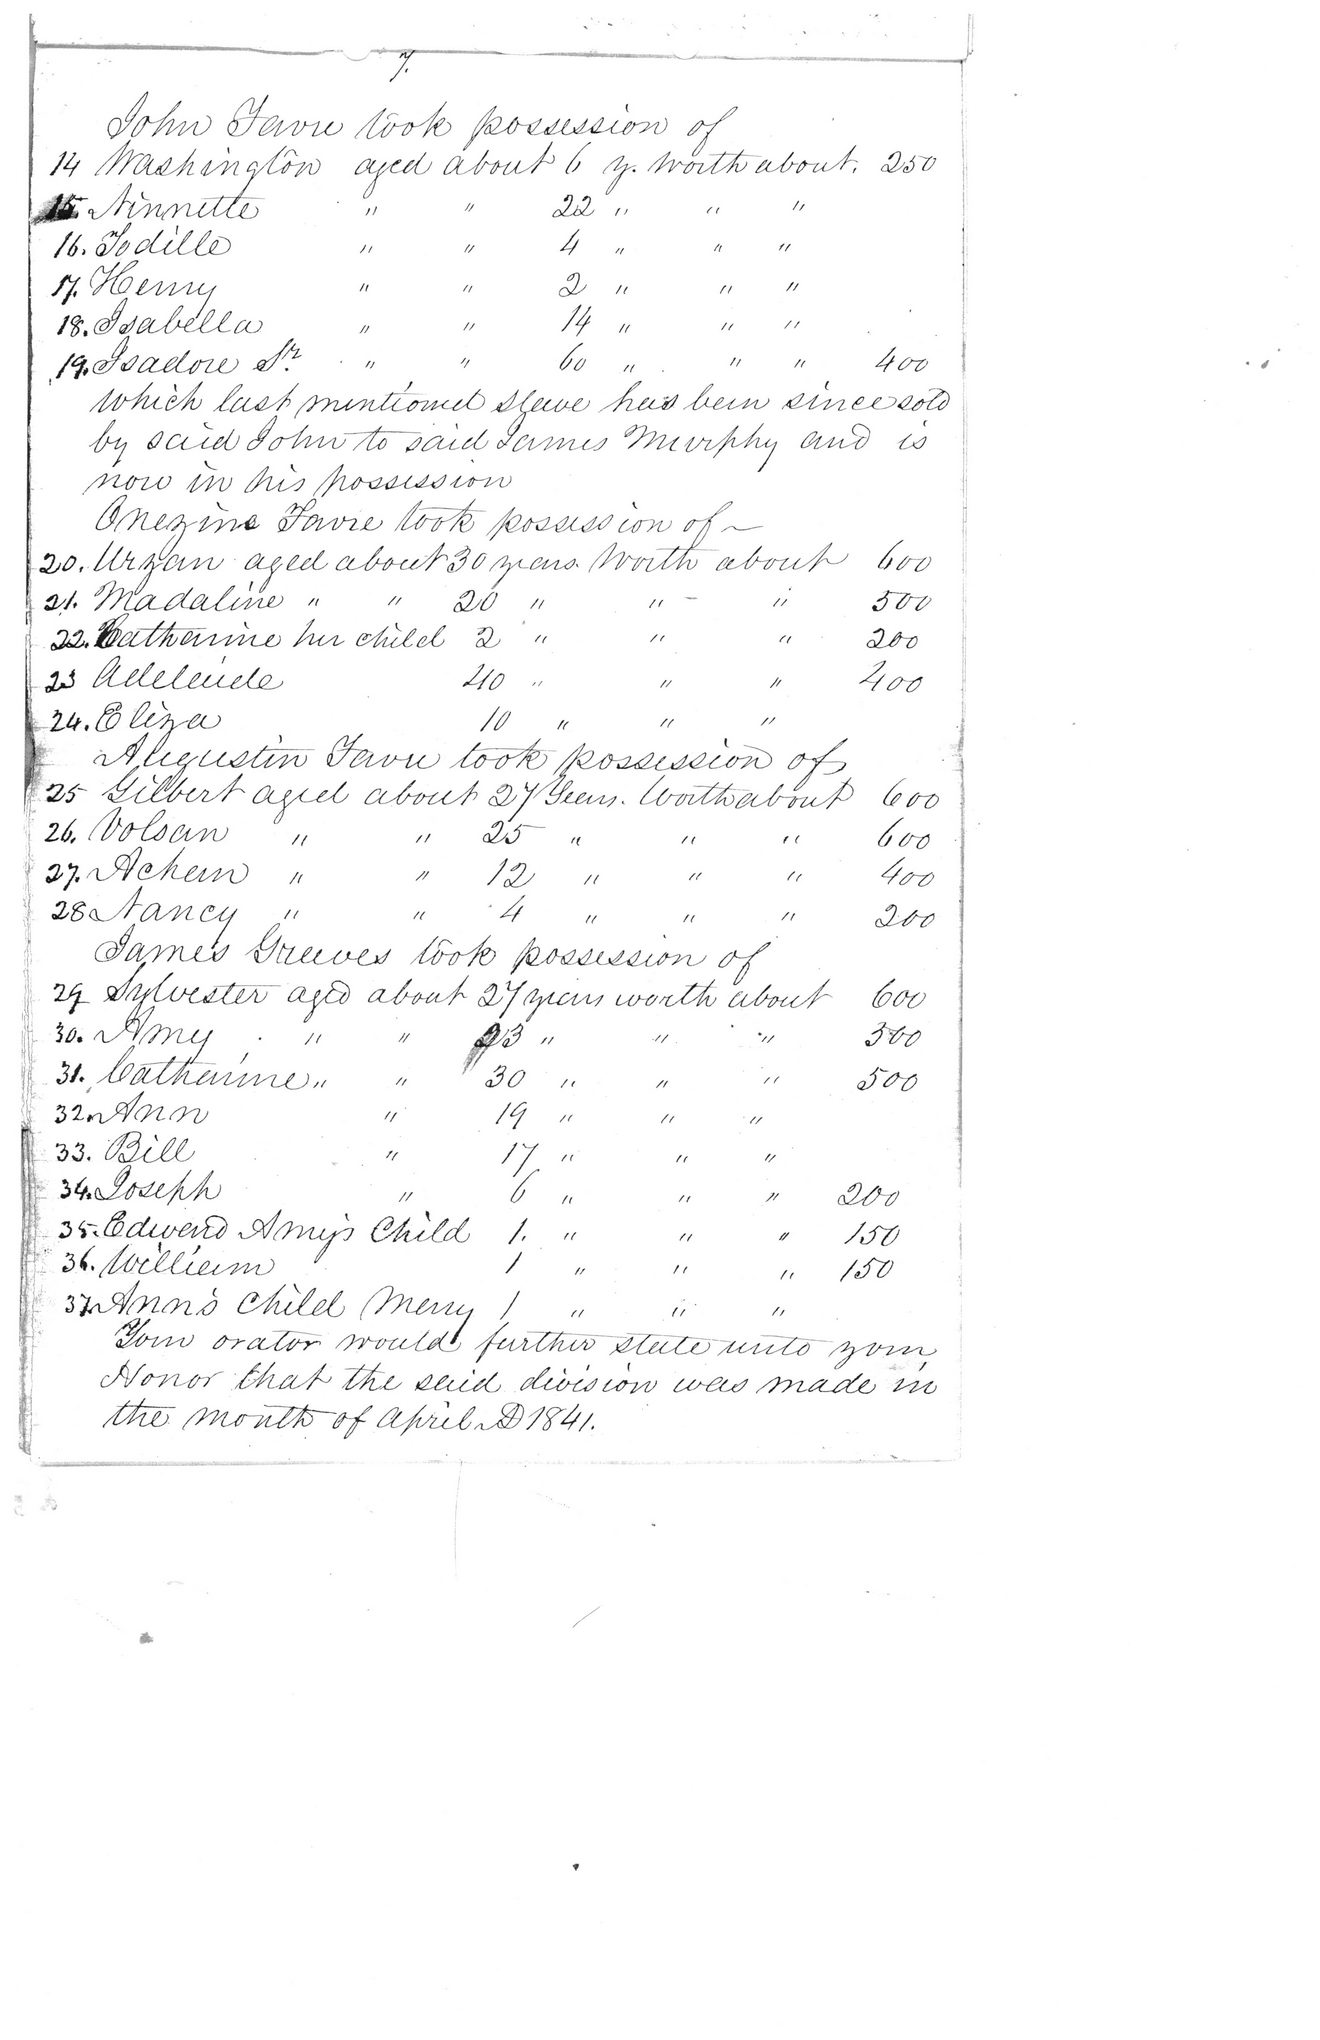 7.
John Favre took possession of
14 Washington aged about 6 y. worth about. 250
15. Ninnette " " 22 " " "
16. Todille " " 4 " " "
17. Henry " " 2 " " "
18. Isabella " " 14 " " "
19. Isadore Sr. " " 60 " " " 400
which last mentioned slave has been since sold
by said John to said James Murphy and is
now in his possession
Onezine Favre took possession of ~
20. Urzan aged about 30 years. Worth about 600
21. Madaline " " 20 " " - " 500
22. Catharine her child 2 " " " 200
23 Adelaide 40 " " " 400
24. Eliza 10 " " "
Augustin Favre took possession of
25 Gilbert aged about 27 Years. Worth about 600
26. Volsan " " 25 " " " 600
27. Acham " " 12 " " " 400
28 Nancy " " 4 " " " 200
James Greeves took possession of
29 Sylvester aged about 27 years worth about 600
30. Amy " " 23 " " " 500
31. Catharine " " 30 " " " 500
32. Ann " 19 " " "
33. Bill " 17 " " "
34. Joseph " 6 " " " 200
35. Edward Amy's Child 1. " " " 150
36. William 1 " " " 150
37. Ann's Child Merry 1 " " "
Your orator would further state unto your
Honor that the said division was made in
the month of April AD 1841.